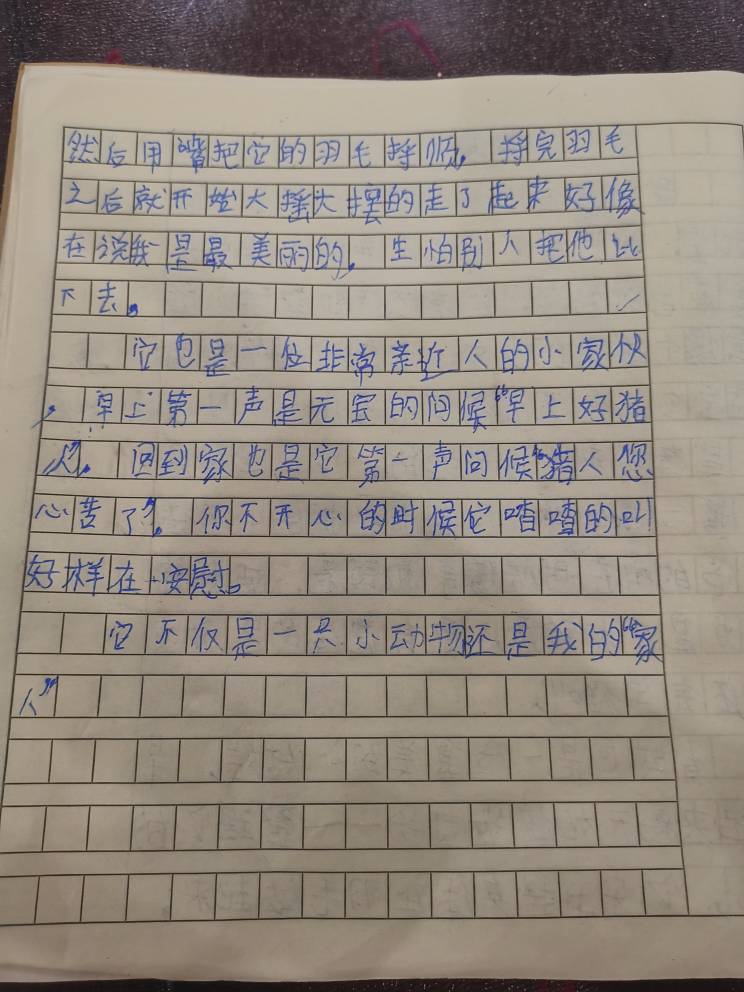 然后用嘴把它的羽毛捋顺。捋完羽毛
之后就开始大摇大摆的走了起来好像
在说我是最美丽的。生怕别人把他比
下去。
它也是一位非常亲近人的小家伙
。早上第一声是元宝的问候“早上好猪
人”。回到家也是它第一声问候“猪人您
心苦了”。你不开心的时候它喳喳的叫
好样在安慰。
它不仅是一只小动物还是我的“家
人”